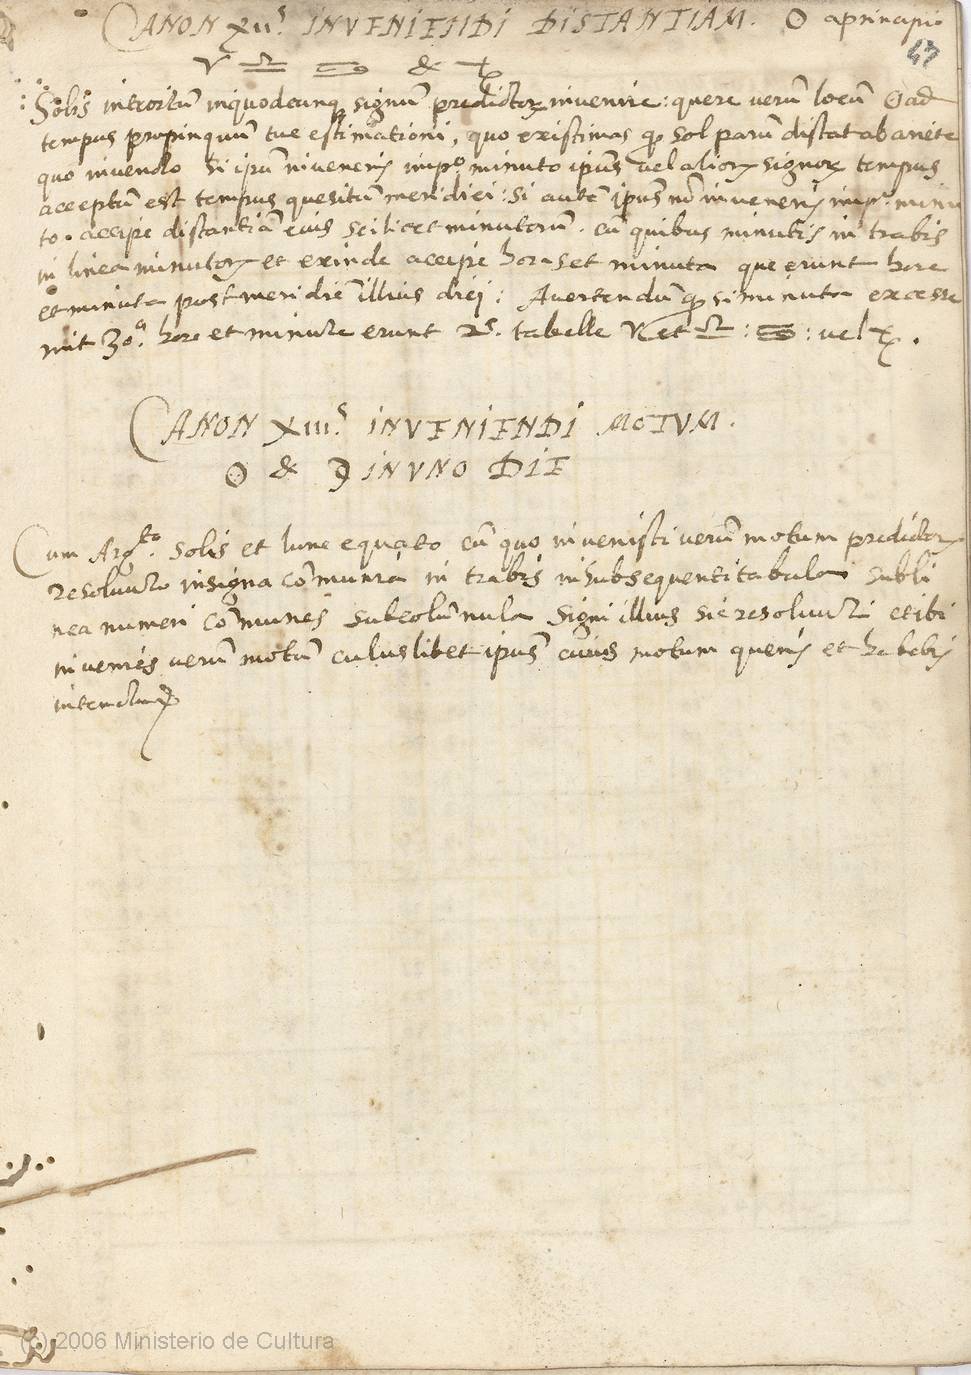 CANON XII.s INVENIENDI DISTANTIAM. ☉ aprincipio
47
♈ ♎ ♋ & ♑
Solis introitũ inquodcunq; signũ predictoꝝ invenire: quere verũ locũ ☉ ad
tempus propinquũ tue estimationi, quo existimas ꝙ sol parũ distat ab ariete
quo invento si ipsũ inveneris imp.o minuto ipsius vel alioꝝ signoꝝ tempus
acceptũ est tempus quesitũ meridiei: Si autẽ ipsũ nõ inveneris imp.o minu
to. accipe distantiã eius scilicet minutorũ. cũ quibus minutis intrabis
in linea minutoꝝ et exinde accipe horas et minuta que erunt hore
et minuta post meridiẽ illius diei: Avertendũ ꝙ si minuta excesse
rint 30.a hore et minuta erunt 2.s tabelle ♈ et ♎: ♋: vel ♑.
CANON XIII.s INVENIENDI MOTVM.
☉ & ☽ IN VNO DIE
Cum Arg.to solis et lune equato cũ quo invenisti verũ motum predictoꝝ
resoluto insigna cõmunia intrabis insubsequenti tabula subli
nea numeri cõmunes subcolũnula signi illius sic resoluti et ibi
invenies verũ motũ cuiuslibet ipsius cuius motum queris et habebis
intentum
(c) 2006 Ministerio de Cultura